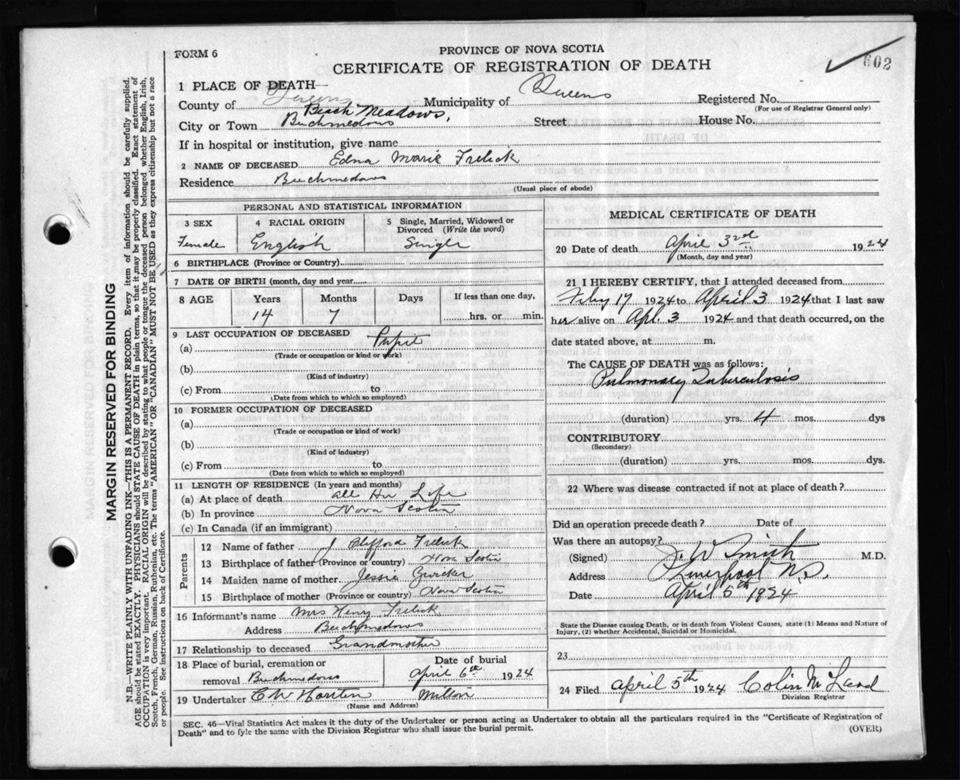 FORM 6
PROVINCE OF NOVA SCOTIA
CERTIFICATE OF REGISTRATION OF DEATH
602
1 PLACE OF DEATH
County of Queens Municipality of Queens Registered No.
(For use of Registrar General only)
Beach Meadows,
City or Town Beechmedows Street House No.
If in hospital or institution, give name
2 NAME OF DECEASED Edna Marie Frelick
Residence Beechmedows
(Usual place of abode)
PERSONAL AND STATISTICAL INFORMATION
3 SEX 4 RACIAL ORIGIN 5 Single, Married, Widowed or Divorced (Write the word)
Female English Single
6 BIRTHPLACE (Province or Country)
7 DATE OF BIRTH (month, day and year)
8 AGE Years Months Days If less than one day,
14 7 hrs. or min.
9 LAST OCCUPATION OF DECEASED
(a) Pupil
(Trade or occupation or kind or work)
(b)
(Kind of industry)
(c) From to
(Date from which to which so employed)
10 FORMER OCCUPATION OF DECEASED
(a)
(Trade or occupation or kind of work)
(b)
(Kind of industry)
(c) From to
(Date from which to which so employed)
11 LENGTH OF RESIDENCE (In years and months)
(a) At place of death all Her Life
(b) In province Nova Scotia
(c) In Canada (if an immigrant)
Parents
12 Name of father J Clifford Frelick
13 Birthplace of father (Province or country) Nova Scotia
14 Maiden name of mother Jessie Zwicker
15 Birthplace of mother (Province or country) Nova Scotia
16 Informant's name Mrs Henry Frelick
Address Beechmedows
17 Relationship to deceased Grandmother
18 Place of burial, cremation or Date of burial
removal Beechmedows April 6th 1924
19 Undertaker C W Milton
(Name and Address)
MEDICAL CERTIFICATE OF DEATH
20 Date of death April 3rd 1924
(Month, day and year)
21 I HEREBY CERTIFY, that I attended deceased from
Feby 17 1924 to April 3 1924 that I last saw
her alive on Apl 3 1924 and that death occurred, on the
date stated above, at m.
The CAUSE OF DEATH was as follows:
Pulmonary Tuberculosis
(duration) yrs. 4 mos. dys
CONTRIBUTORY
(Secondary)
(duration) yrs. mos. dys.
22 Where was disease contracted if not at place of death?
Did an operation precede death? Date of
Was there an autopsy?
(Signed) J W Smith M.D.
Address Liverpool N.S.
Date April 6th 1924
State the Disease causing Death, or in death from Violent Causes, state (1) Means and Nature of
Injury, (2) whether Accidental, Suicidal or Homicidal.
23
24 Filed April 5th 1924 Colin
Division Registrar
SEC. 46—Vital Statistics Act makes it the duty of the Undertaker or person acting as Undertaker to obtain all the particulars required in the "Certificate of Registration of
Death" and to fyle the same with the Division Registrar who shall issue the burial permit.
(OVER)
MARGIN RESERVED FOR BINDING
N.B.—WRITE PLAINLY WITH UNFADING INK—THIS IS A PERMANENT RECORD. Every item of information should be carefully supplied.
AGE should be stated EXACTLY. PHYSICIANS should STATE CAUSE OF DEATH in plain terms, so that it may be properly classified. Exact statement of
OCCUPATION is very important. RACIAL ORIGIN will be described by stating to what people or tongue the deceased person belonged whether English, Irish,
Scotch, French, German, Russian, Ruthenian, etc. The terms "AMERICAN" OR "CANADIAN" MUST NOT BE USED as they express citizenship but not a race
or people. See instructions on back of Certificate.